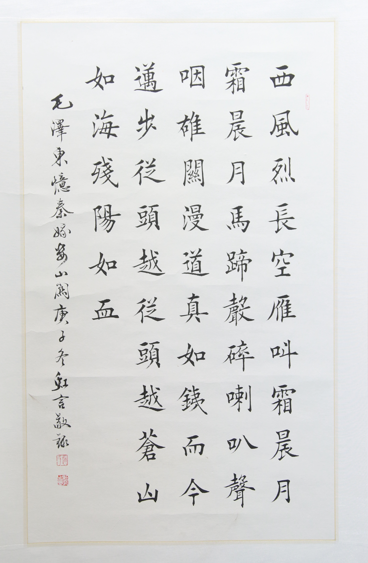 西風烈長空雁叫霜晨月
霜晨月馬蹄聲碎喇叭聲
咽雄關漫道真如銕而今
邁步從頭越從頭越蒼山
如海殘陽如血
毛澤東憶秦娥婁山關庚子冬虹言敬録